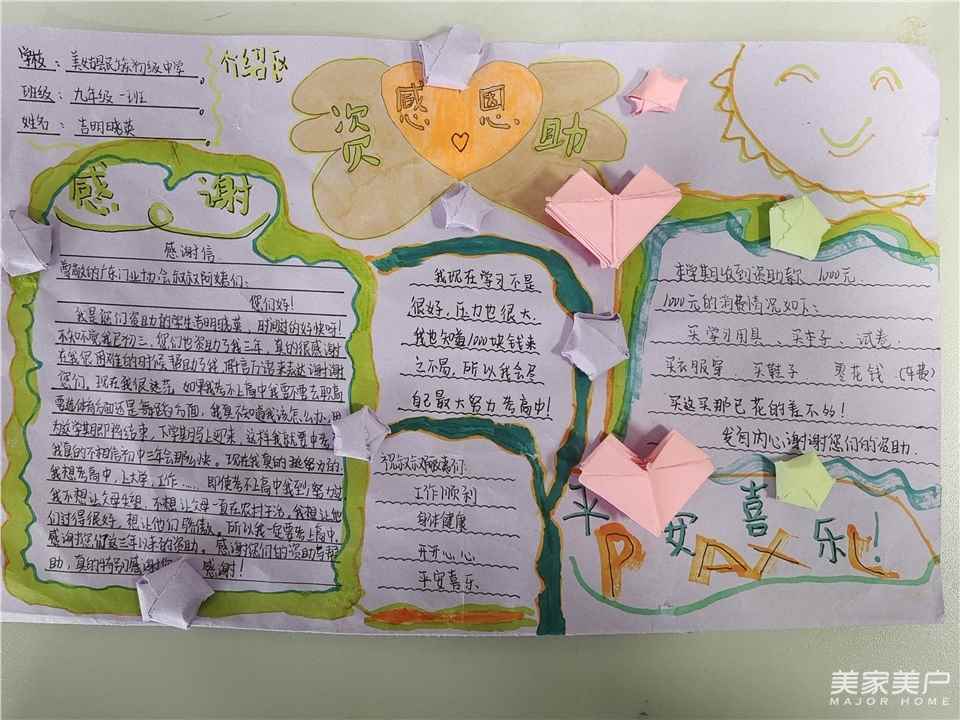 学校：美姑县民族初级中学
班级：九年级一班
姓名：吉明晓英
介绍区
感恩
资助
感谢
感谢信
尊敬的广东门业协会叔叔阿姨们：
您们好！
我是您们资助的学生吉明晓英，时间过的好快呀！
不知不觉我已初三，您们也资助了我三年，真的很感谢
在我您困难的时候帮助了我
您们。现在我很迷茫，如果我考不上高中我要不要去职高
为这学期即将结束，下学期马上到来，这样我就要中考
我真的不相信初中三年会那么快。现在我真的挺努力的
我想考高中，上大学，工作……即使考不上高中我
我不想让父母失望，不想让父母一直在农村生活，我想让他
们过得很好，想让他们骄傲，所以我一定要考上高中。
感谢您们这三年以来的资助。感谢您们的资助与帮
助，真的特别感谢您
感谢！
我现在学习不是
很好，压力也很大，
我也知道1000块钱来
之不易，所以我会尽
自己最大努力考高中！
祝叔叔阿姨们：
工作顺利
身体健康
开开心心
平安喜乐
本学期收到资助款 1000元.
1000元的消费情况如下：
买学习用具、买本子、试卷.
买衣服穿、买鞋子 零花钱（车费）
买这买那已花的差不多！
发自内心谢谢您们的资助.
平安喜乐！
美家美户
MAJOR HOME